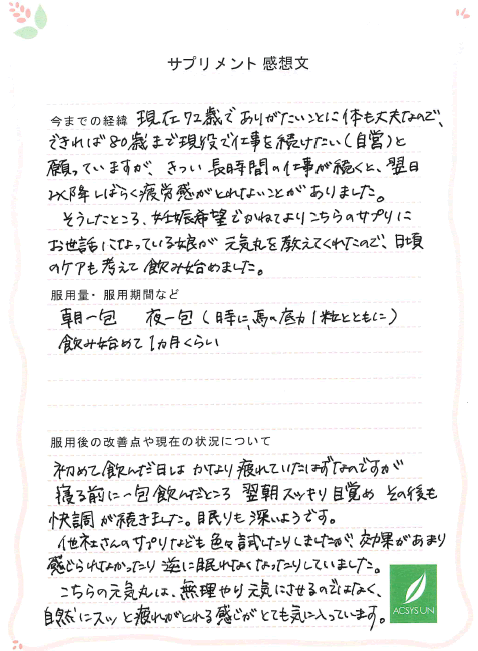 サプリメント 感想文
今までの経緯 現在72歳でありがたいことに体も丈夫なので、
できれば80歳まで現役で仕事を続けたい(自営)と
願っていますが、きつい長時間の仕事が続くと、翌日
以降しばらく疲労感がとれないことがありました。
そうしたところ、妊娠希望でかねてよりこちらのサプリに
お世話になっている娘が元気丸を教えてくれたので、日頃
のケアも考えて飲み始めました。
服用量・服用期間など
朝一包 夜一包(時に、馬の底力1粒とともに)
飲み始めて1ヵ月くらい
服用後の改善点や現在の状況について
初めて飲んだ日はかなり疲れていたはずなのですが
寝る前に一包飲んだところ 翌朝スッキリ目覚め その後も
快調が続きました。眠りも深いようです。
他社さんのサプリなども色々試したりしましたが、効果があまり
感じられなかったり逆に眠れなくなったりしていました。
こちらの元気丸は、無理やり元気にさせるのではなく、
自然にスッと疲れがとれる感じがとても気に入っています。
ACSYSUN